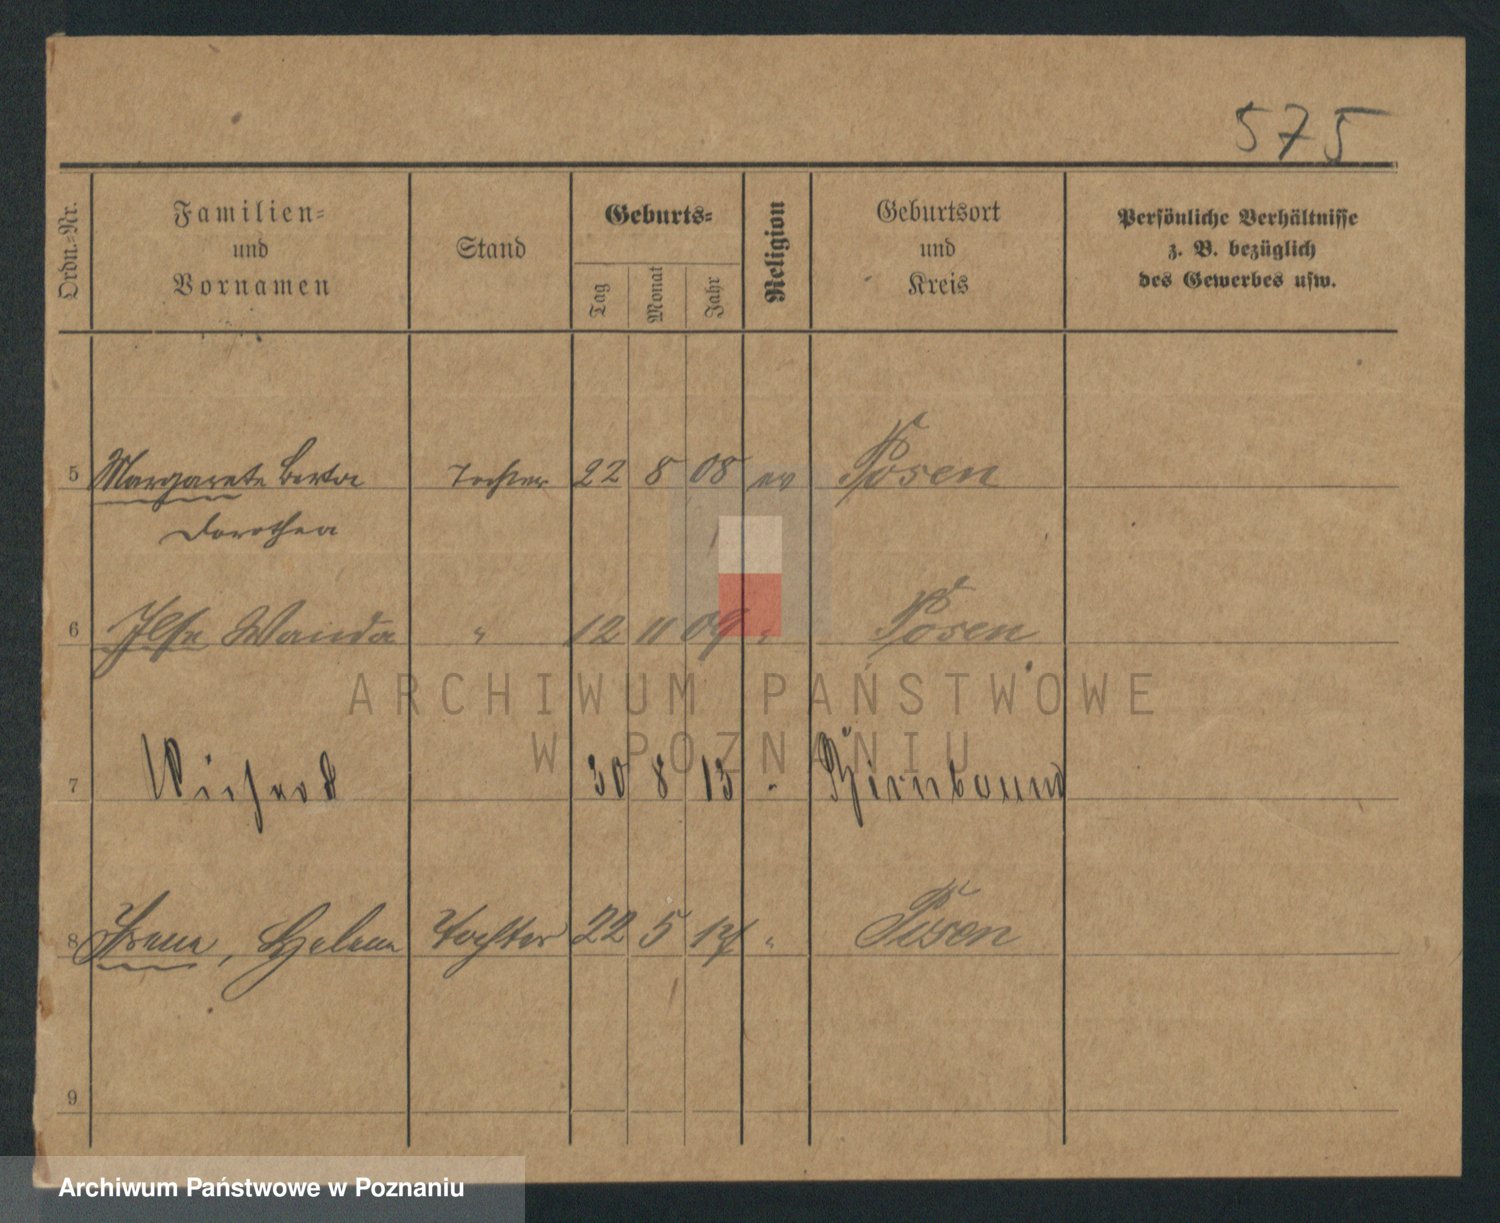 575
Ordn.-Nr.
Familien-
und
Vornamen
Stand
Geburts-
Tag
Monat
Jahr
Religion
Geburtsort
und
Kreis
Persönliche Verhältnisse
z. B. bezüglich
des Gewerbes usw.
5 Margarete Berta Tochter 22 8 08 ev Posen
Dorothea
6 Ilse Wanda " 12 11 09 " Posen
ARCHIWUM PAŃSTWOWE
W POZNANIU
7 30 8 13 Birnbaum
8 Irene, Helene Tochter 22 5 14 " Posen
9
Archiwum Państwowe w Poznaniu